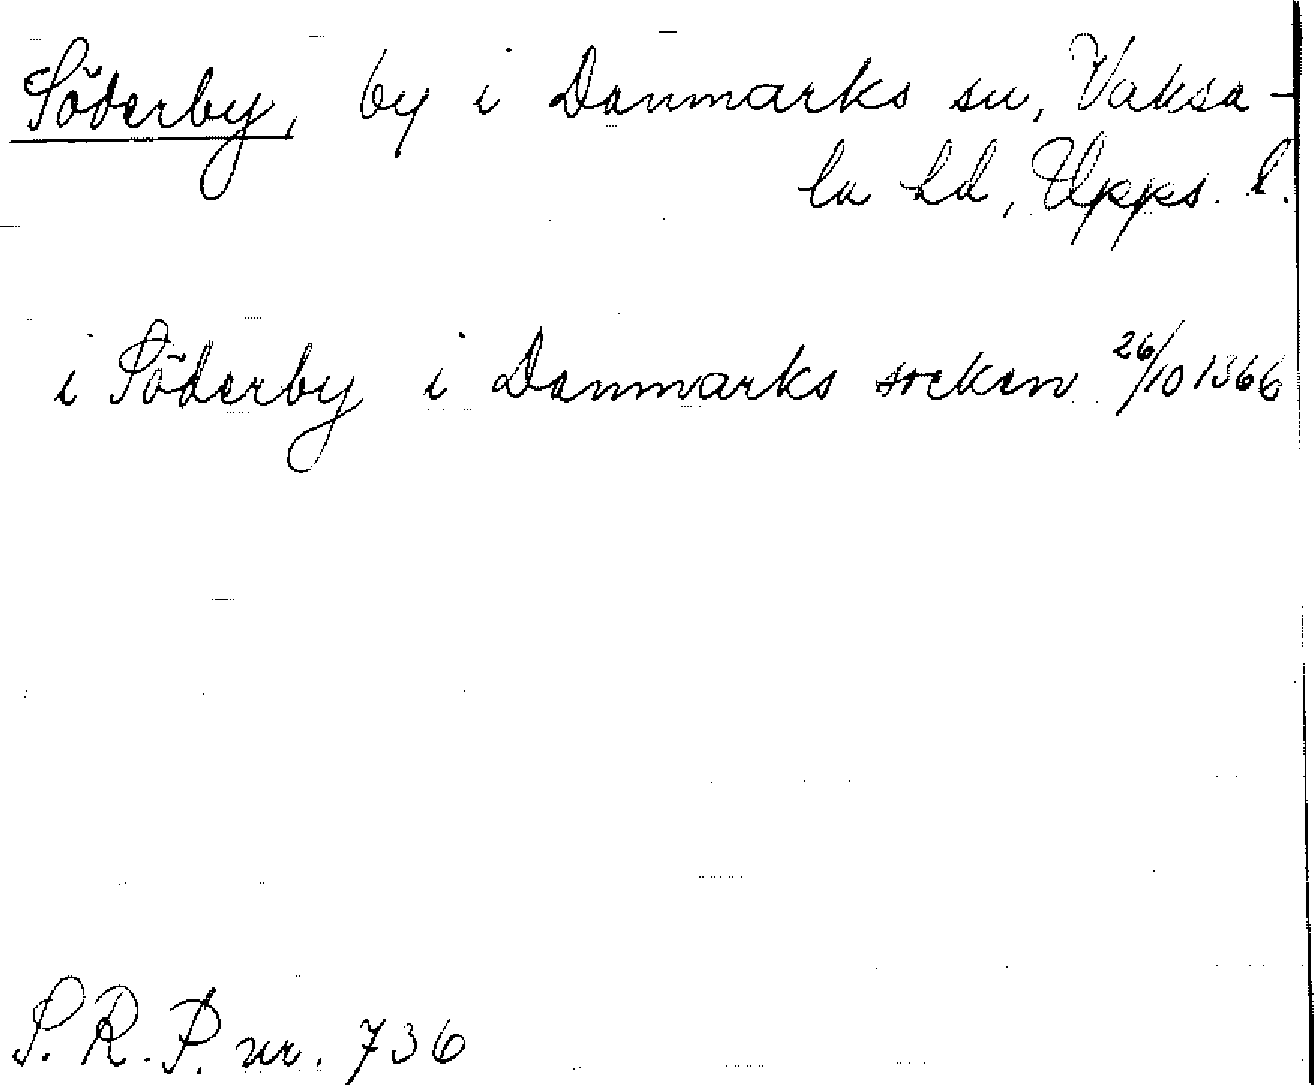 Söderby, by i Danmarks sn, Vaksa-
la hd, Upps. l.
i Söderby i Danmarks socken 26/10 1366
S.R.P. nr. 736